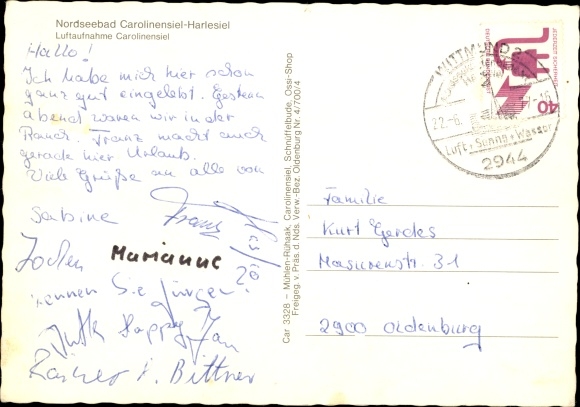 Nordseebad Carolinensiel-Harlesiel
Luftaufnahme Carolinensiel
Hallo!
Ich habe mich hier schon
ganz gut eingelebt. Gestern
abend waren wir in der
Franz macht auch
gerade hier Urlaub.
Viele Grüße an alle von
Sabine
Franz
Jochen
Marianne
kennen Sie Jürgen?
Jutta Happy Jan
Rainer i. Bittner
Car 3328 – Mühlen-Ruhaak, Carolinensiel, Schnüffelbude, Ossi-Shop
Freigeg. v. Präs. d. Nds. Verw.-Bez. Oldenburg Nr. 4/700/4
WITTMUND 2
22.-6.
Luft + Sonne + Wasser
2944
40
Familie
Kurt Gerdes
Masurenstr. 31
2900 Oldenburg